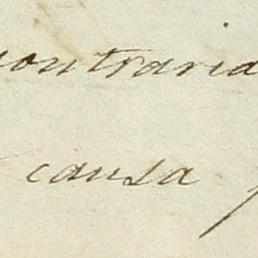 contraria
causa